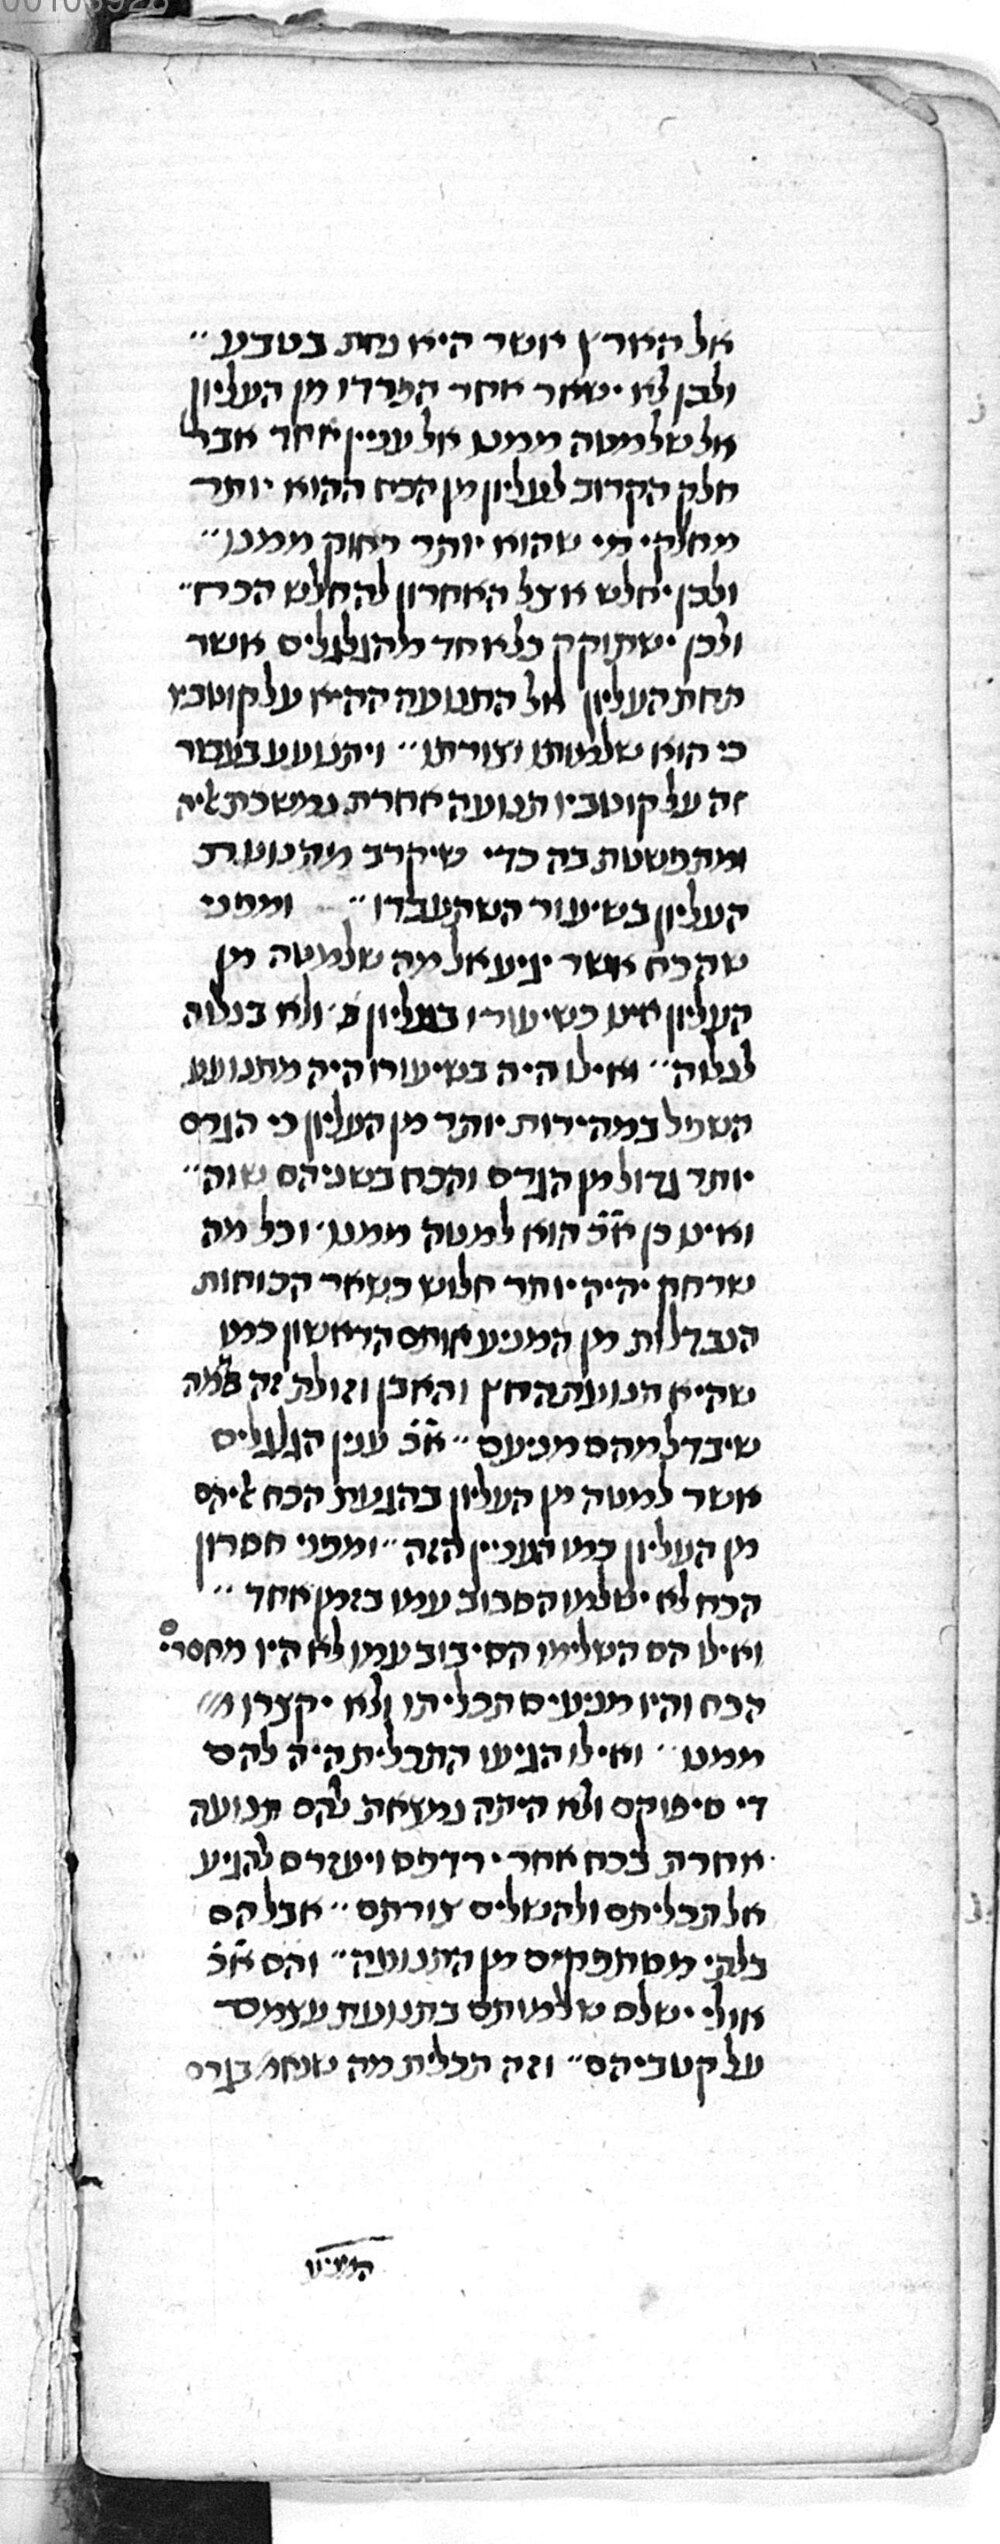 00103928
אל הארץ אשר היא נחת בטבע״
ולכן לא ישאר אחר הפרדו מן העליון
אל שלמטה ממנו אל עניין אחד אבל
חלק הקרוב לעליון מן הכח ההוא יותר
מחלקי מי שהוא יותר רחוק ממנו״
ולכן יחלש אצל האחרון להחלש הכח״
ולכן ישתוקק כל אחד מהגלגלים אשר
תחת העליון אל התנועה ההיא על קוטביו
כי הוא שלמותו וצורתו״ ויתנועע בעבור
זה על קוטביו תנועה אחרת נמשכת אליה
ומתפשטת בה כדי שיקרב מתנועת
העליון בשיעור השתעבדו״ ומפני
שהכח אשר יגיע אל מה שלמטה מן
העליון אינו כשיעורו בעליון ולא בגלוה
לגלוה״ ואילו היה בשיעורו היה מתנועע
השפל במהירות יותר מן העליון כי הגרם
יותר גדול מן הגרם והכח בשניהם שוה״
ואינו כן א״כ הוא למטה ממנו וכל מה
שרחק יהיה יותר חלוש כשאר הכוחות
הנבדלות מן המניע אותם הראשון כמו
שהיא תנועת החץ והאבן וזולת זה ממה
שיבדל מהם מניעם״ א״כ ענין הגלגלים
אשר למטה מן העליון בהגעת הכח אליהם
מן העליון כמו העניין הזה״ ומפני חסרון
הכח לא ישלמו הסבוב עמו בזמן אחד״
ואילו הם השלימו הסיבוב עמו לא היו מחסרי
הכח והיו מגיעים תכליתו ולא יקצרו
ממנו״ ואילו הגיעו התכלית היה להם
די סיפוקם ולא היתה נמצאת להם תנועה
אחרת בכח אחר ירדפם ויעזרם להגיע
אל תכליתם ולהשלים צורתם״ אבל הם
בלתי מסתפקים מן התנועה״ והם א״כ
אולי ישלם שלמותם בתנועת עצמם
על קטביהם״ וזה תכלית מה שנאמר בגרם
המניע